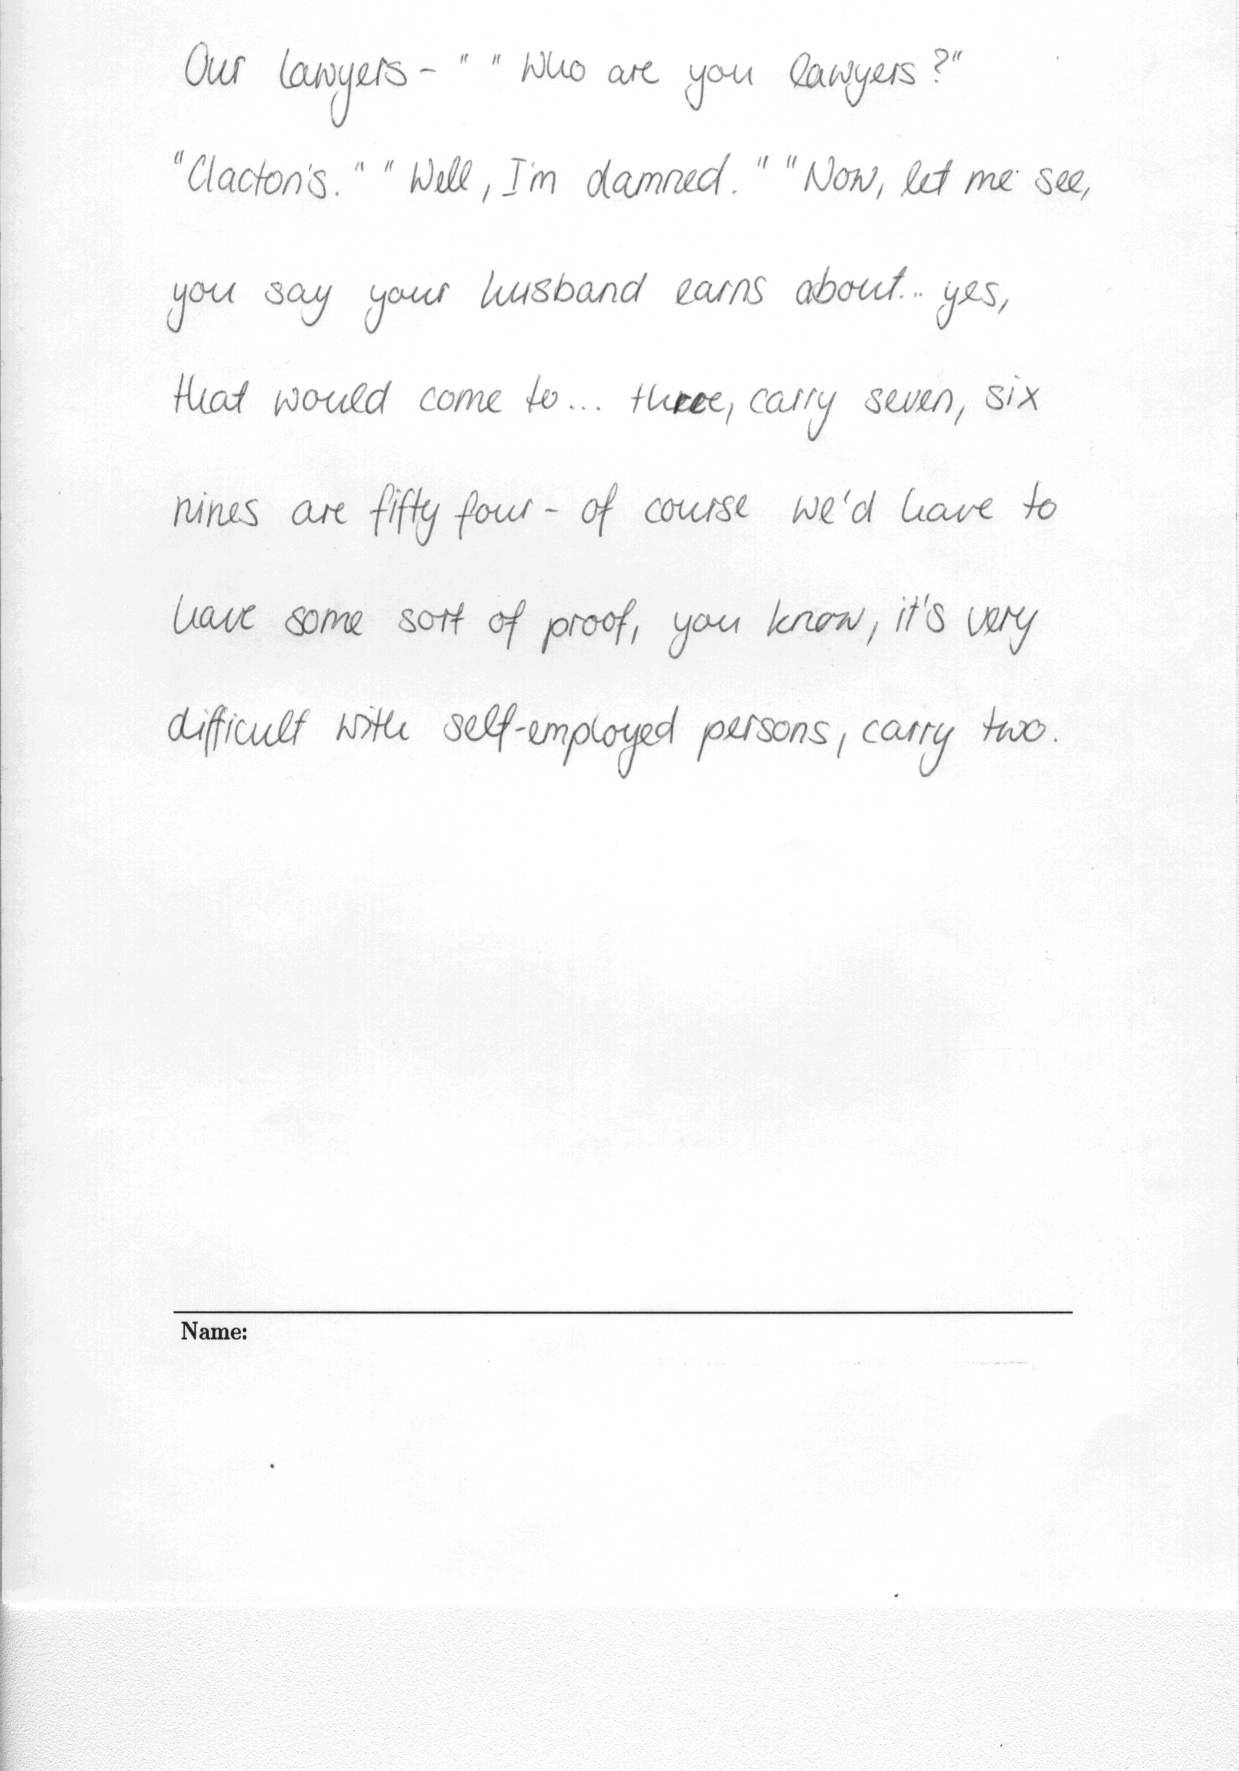 Our lawyers - " " Who are you lawyers ?"
"Clacton's. " " Well, I'm damned. " "Now, let me see,
you say your husband earns about... yes,
that would come to... three, carry seven, six
nines are fifty four - of course we'd have to
have some sort of proof, you know, it's very
difficult with self-employed persons, carry two.
Name: